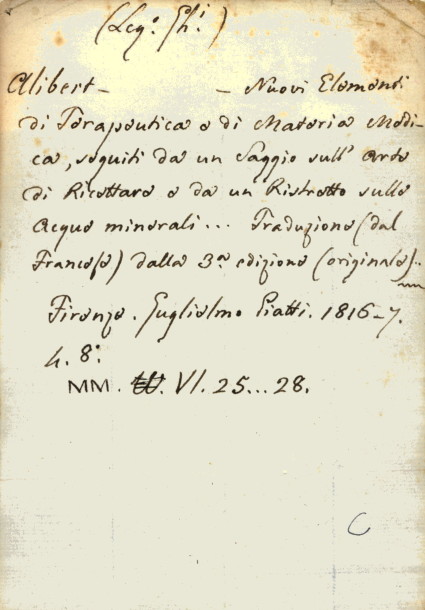 (Leg.º Gh.i)
Alibert – – Nuovi Elementi
di Terapeutica e di Materia Medi-
ca, seguiti da un Saggio sull' Arte
di Ricettare e da un Ristretto sulle
Acque minerali... Traduzione (dal
Francese) dalla 3.ª edizione (originale)..
Firenze. Guglielmo Piatti. 1816–7.
4. 8.º
MM. VI. 25...28.
C